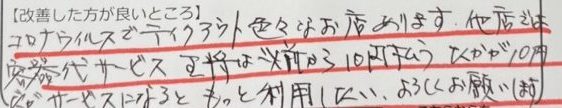 【改善した方が良いところ】
コロナウイルスでテイクアウト色々なお店あります。他店では
容器代サービス 王将は以前から10円払う たかが10円
がサービスになると もっと利用したい、よろしくお願いします